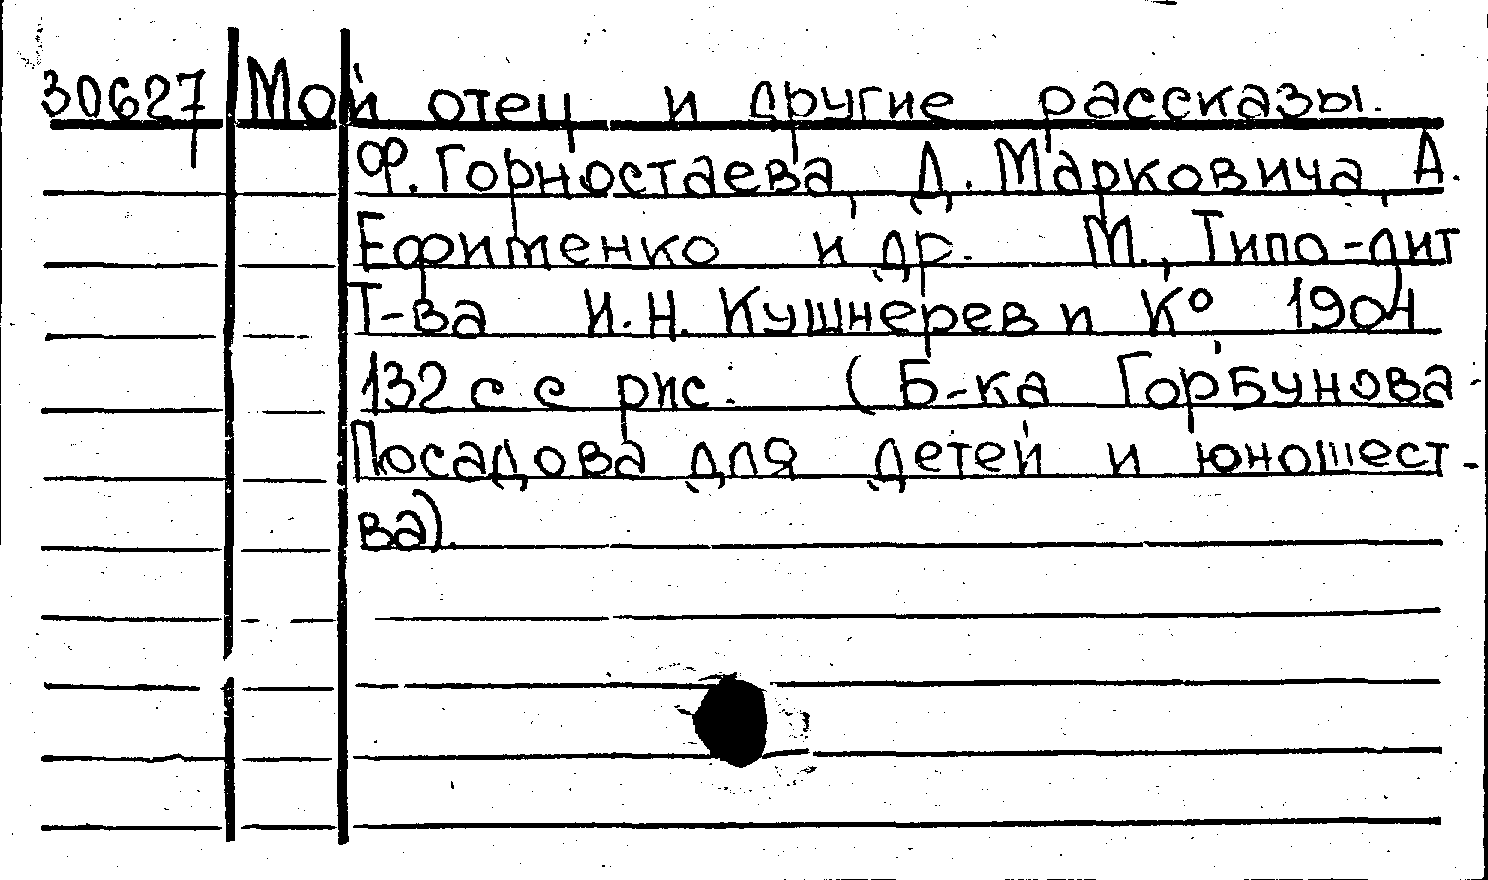 30627 Мой отец и другие рассказы.
Ф. Горностаева, Д. Марковича, А.
Ефименко и др. М., Типо-лит
Т-ва И.Н. Кушнерев и Ко 1904
132 с с рис. (Б-ка Горбунова-
Посадова для детей и юношест-
ва).